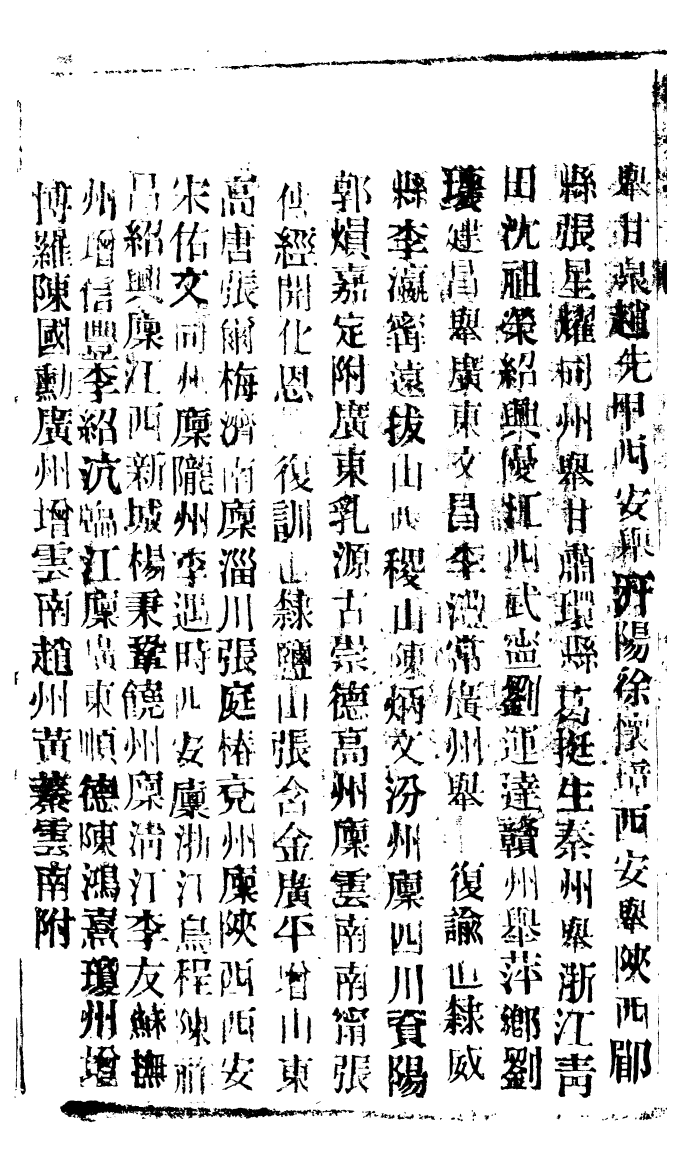 舉甘泉趙先甲西安舉浒陽徐懷璋西安舉陝西郿
縣張星耀同州舉甘肅環縣葛挺生秦州舉浙江青
田沈祖榮紹興優江西武寧劉運達贛州舉萍鄉劉
瓊建昌舉廣東文昌李澧常廣州舉 復諭直隸威
縣李瀛甯遠拔山西稷山陳炳文汾州廩四川資陽
郭熉嘉定附廣東乳源古崇德高州廩雲南南甯張
仕經開化恩 復訓直隸鹽山張含金廣平增山東
高唐張爾梅濟南廩淄川張庭椿兗州廩陝西西安
宋佑文同州廩隴州李遇時西安廩浙江烏程陳
呂紹興廩江西新城楊秉鞏饒州廩清江李友蘇撫
州增信豐李紹沆臨江廩廣東順德陳鴻熹瓊州增
博羅陳國勳廣州增雲南趙州黃蓁雲南附